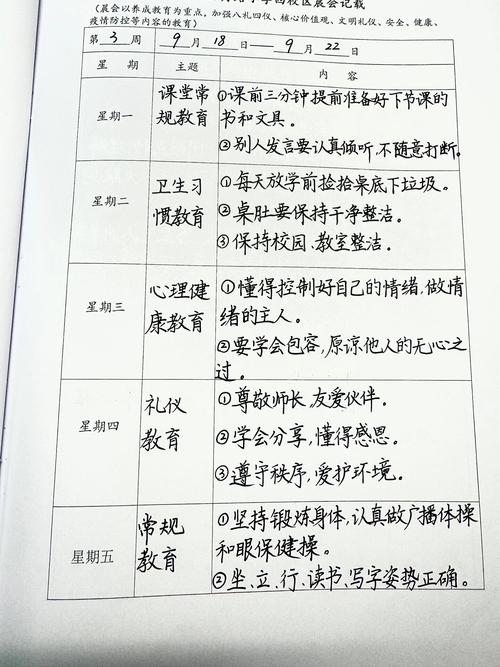 学西校区晨会记载
(晨会以养成教育为重点，加强八礼四仪、核心价值观、文明礼仪、安全、健康、
疫情防控等内容的教育)
第 3 周 9 月 18 日——9 月 22 日
星 期 主题 内 容
星期一
课堂常
规教育
①课前三分钟提前准备好下节课的
书和文具。
②别人发言要认真倾听,不随意打断。
星期二
卫生习
惯教育
①每天放学前捡拾桌底下垃圾。
②桌肚要保持干净整洁。
③保持校园、教室整洁。
星期三
心理健
康教育
①懂得控制好自己的情绪,做情
绪的主人。
②要学会包容,原谅他人的无心之
过。
星期四
礼仪
教育
①尊敬师长,友爱伙伴。
②学会分享,懂得感恩。
③遵守秩序,爱护环境。
星期五
常规
教育
①坚持锻炼身体,认真做广播体操
和眼保健操。
②坐、立、行、读书、写字姿势正确。